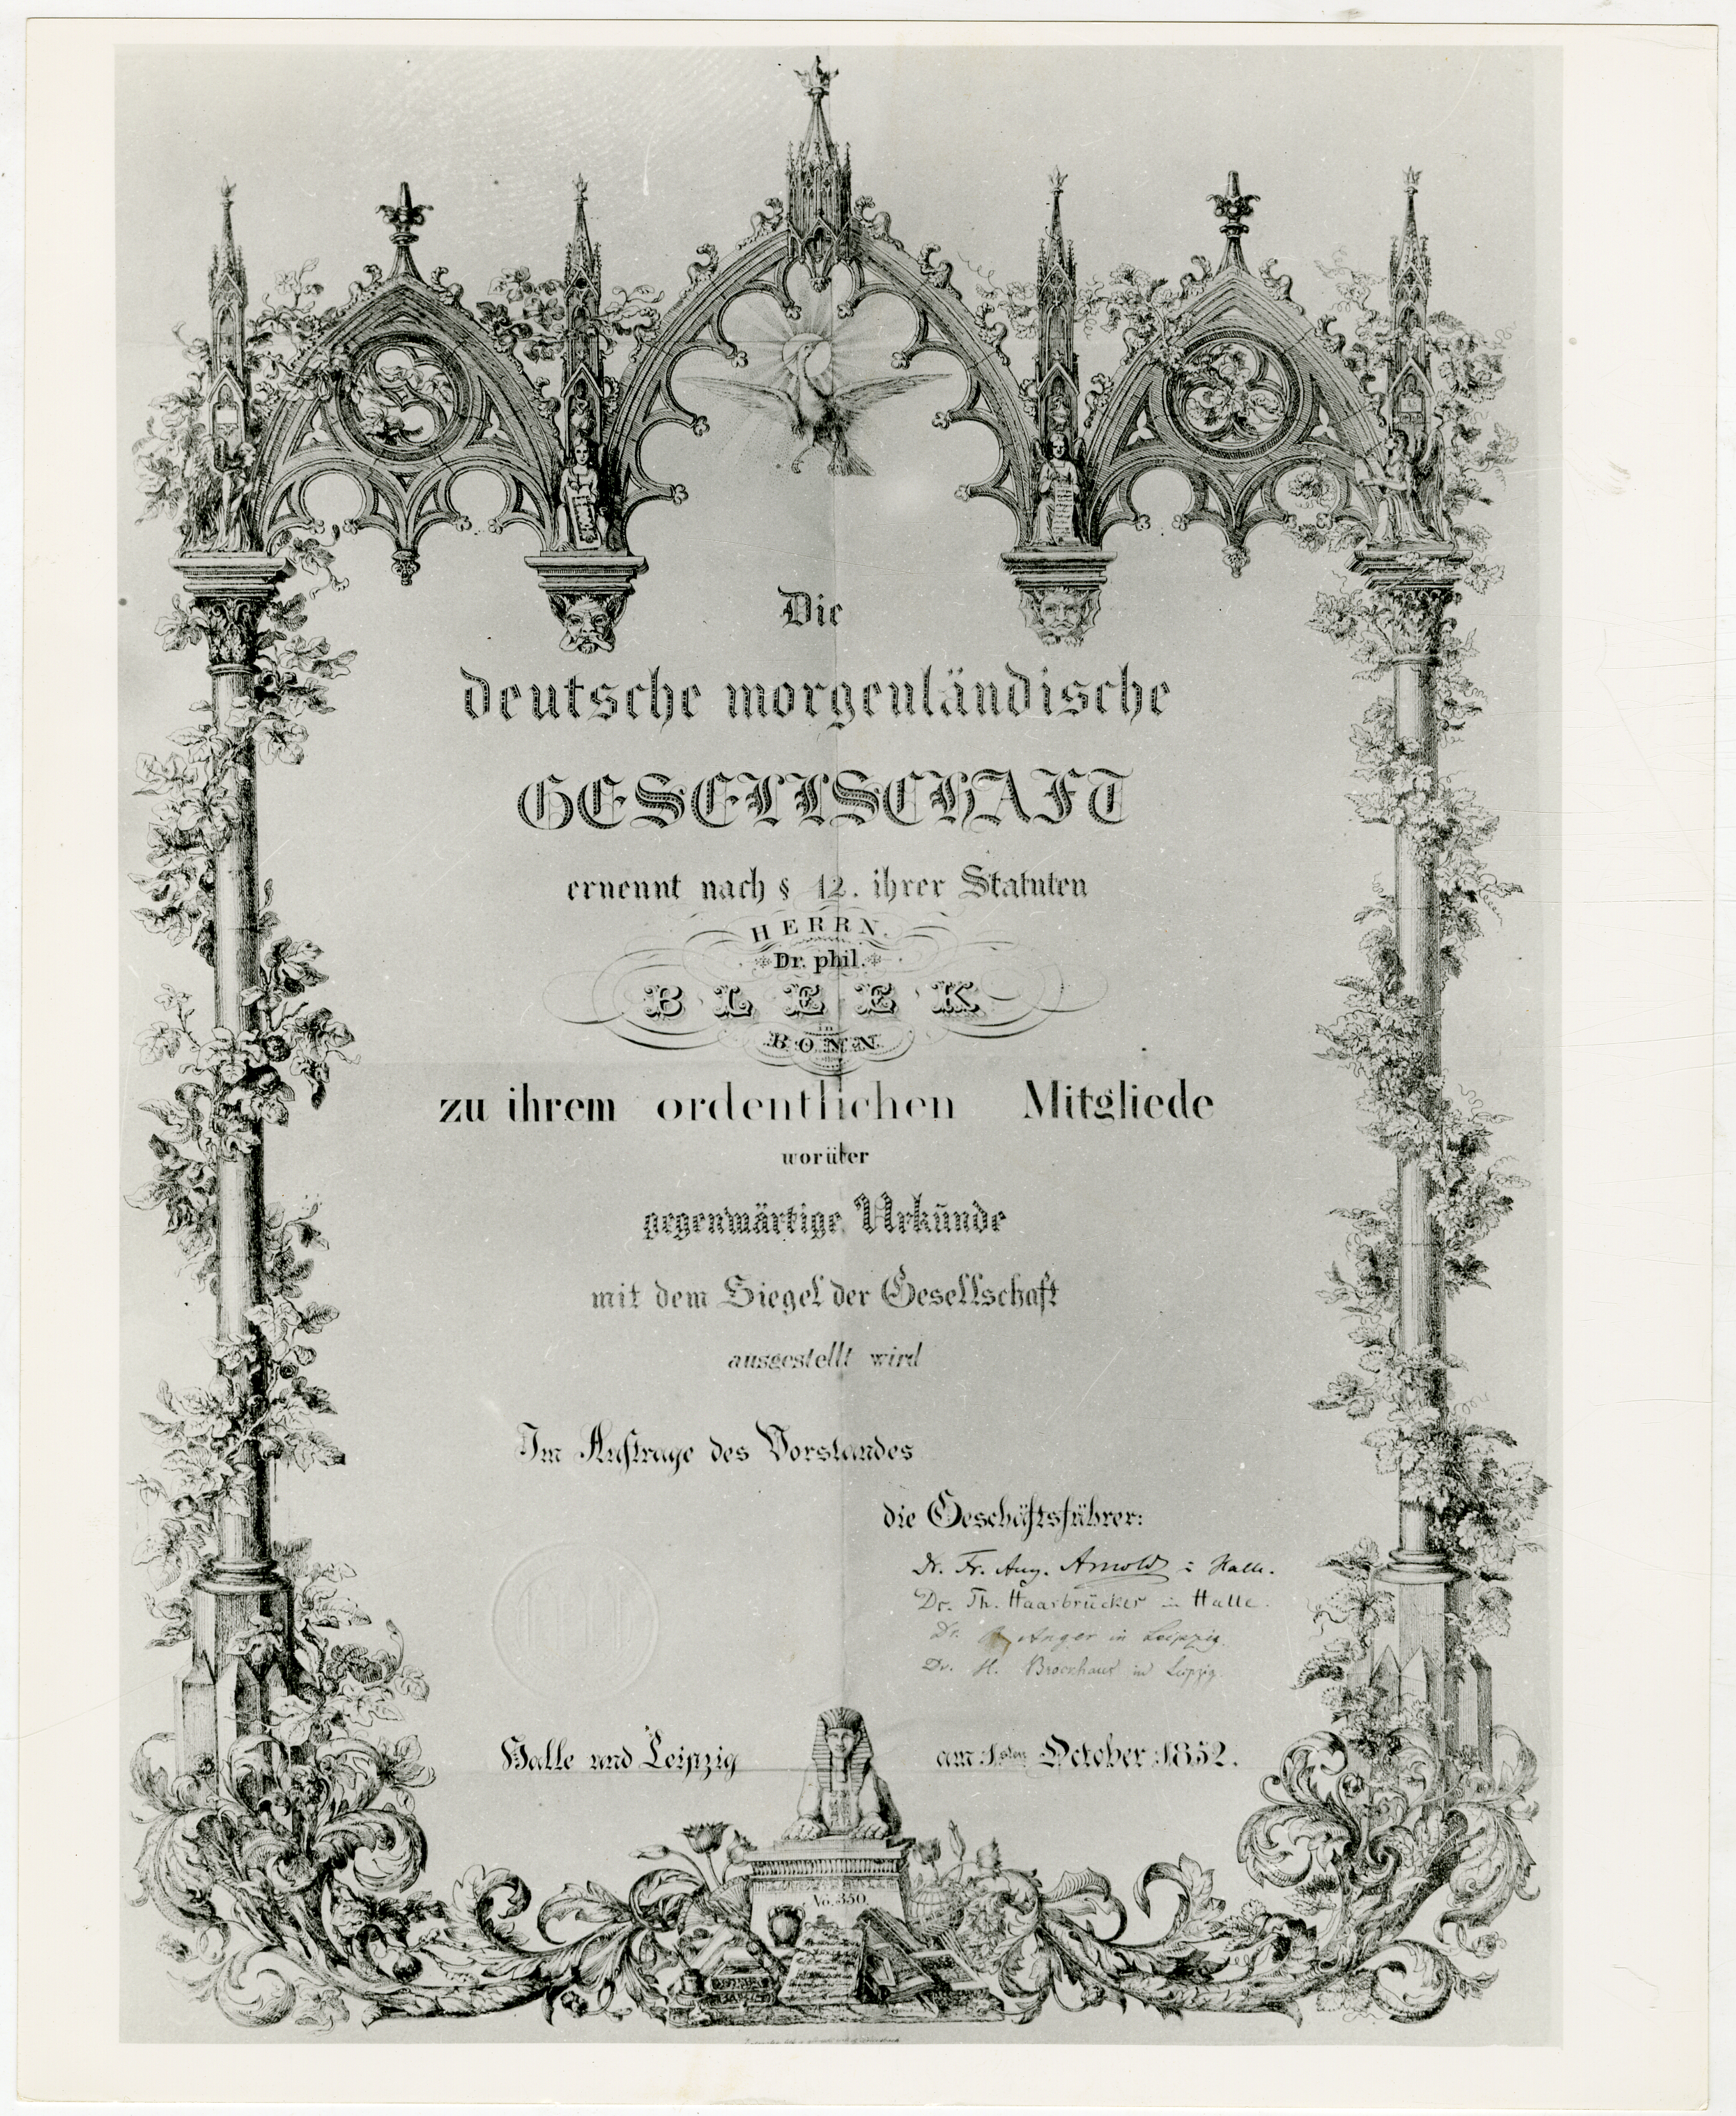 Die
deutsche morgenländische
GESELLSCHAFT
ernennt nach § 12. ihrer Statuten
HERRN.
Dr. phil.
BLEEK
in
BONN
zu ihrem ordentlichen Mitgliede
worüber
gegenwärtige Urkunde
mit dem Siegel der Gesellschaft
ausgestellt wird
Im Auftrage des Vorstandes
die Geschäftsführer:
Dr. Fr. Aug. Arnold in Halle.
Dr. Th. Haarbrücker in Halle.
Dr. Anger in Leipzig.
Dr. H. Brockhaus in Leipzig.
Halle und Leipzig am 1sten October 1852.
No. 350.